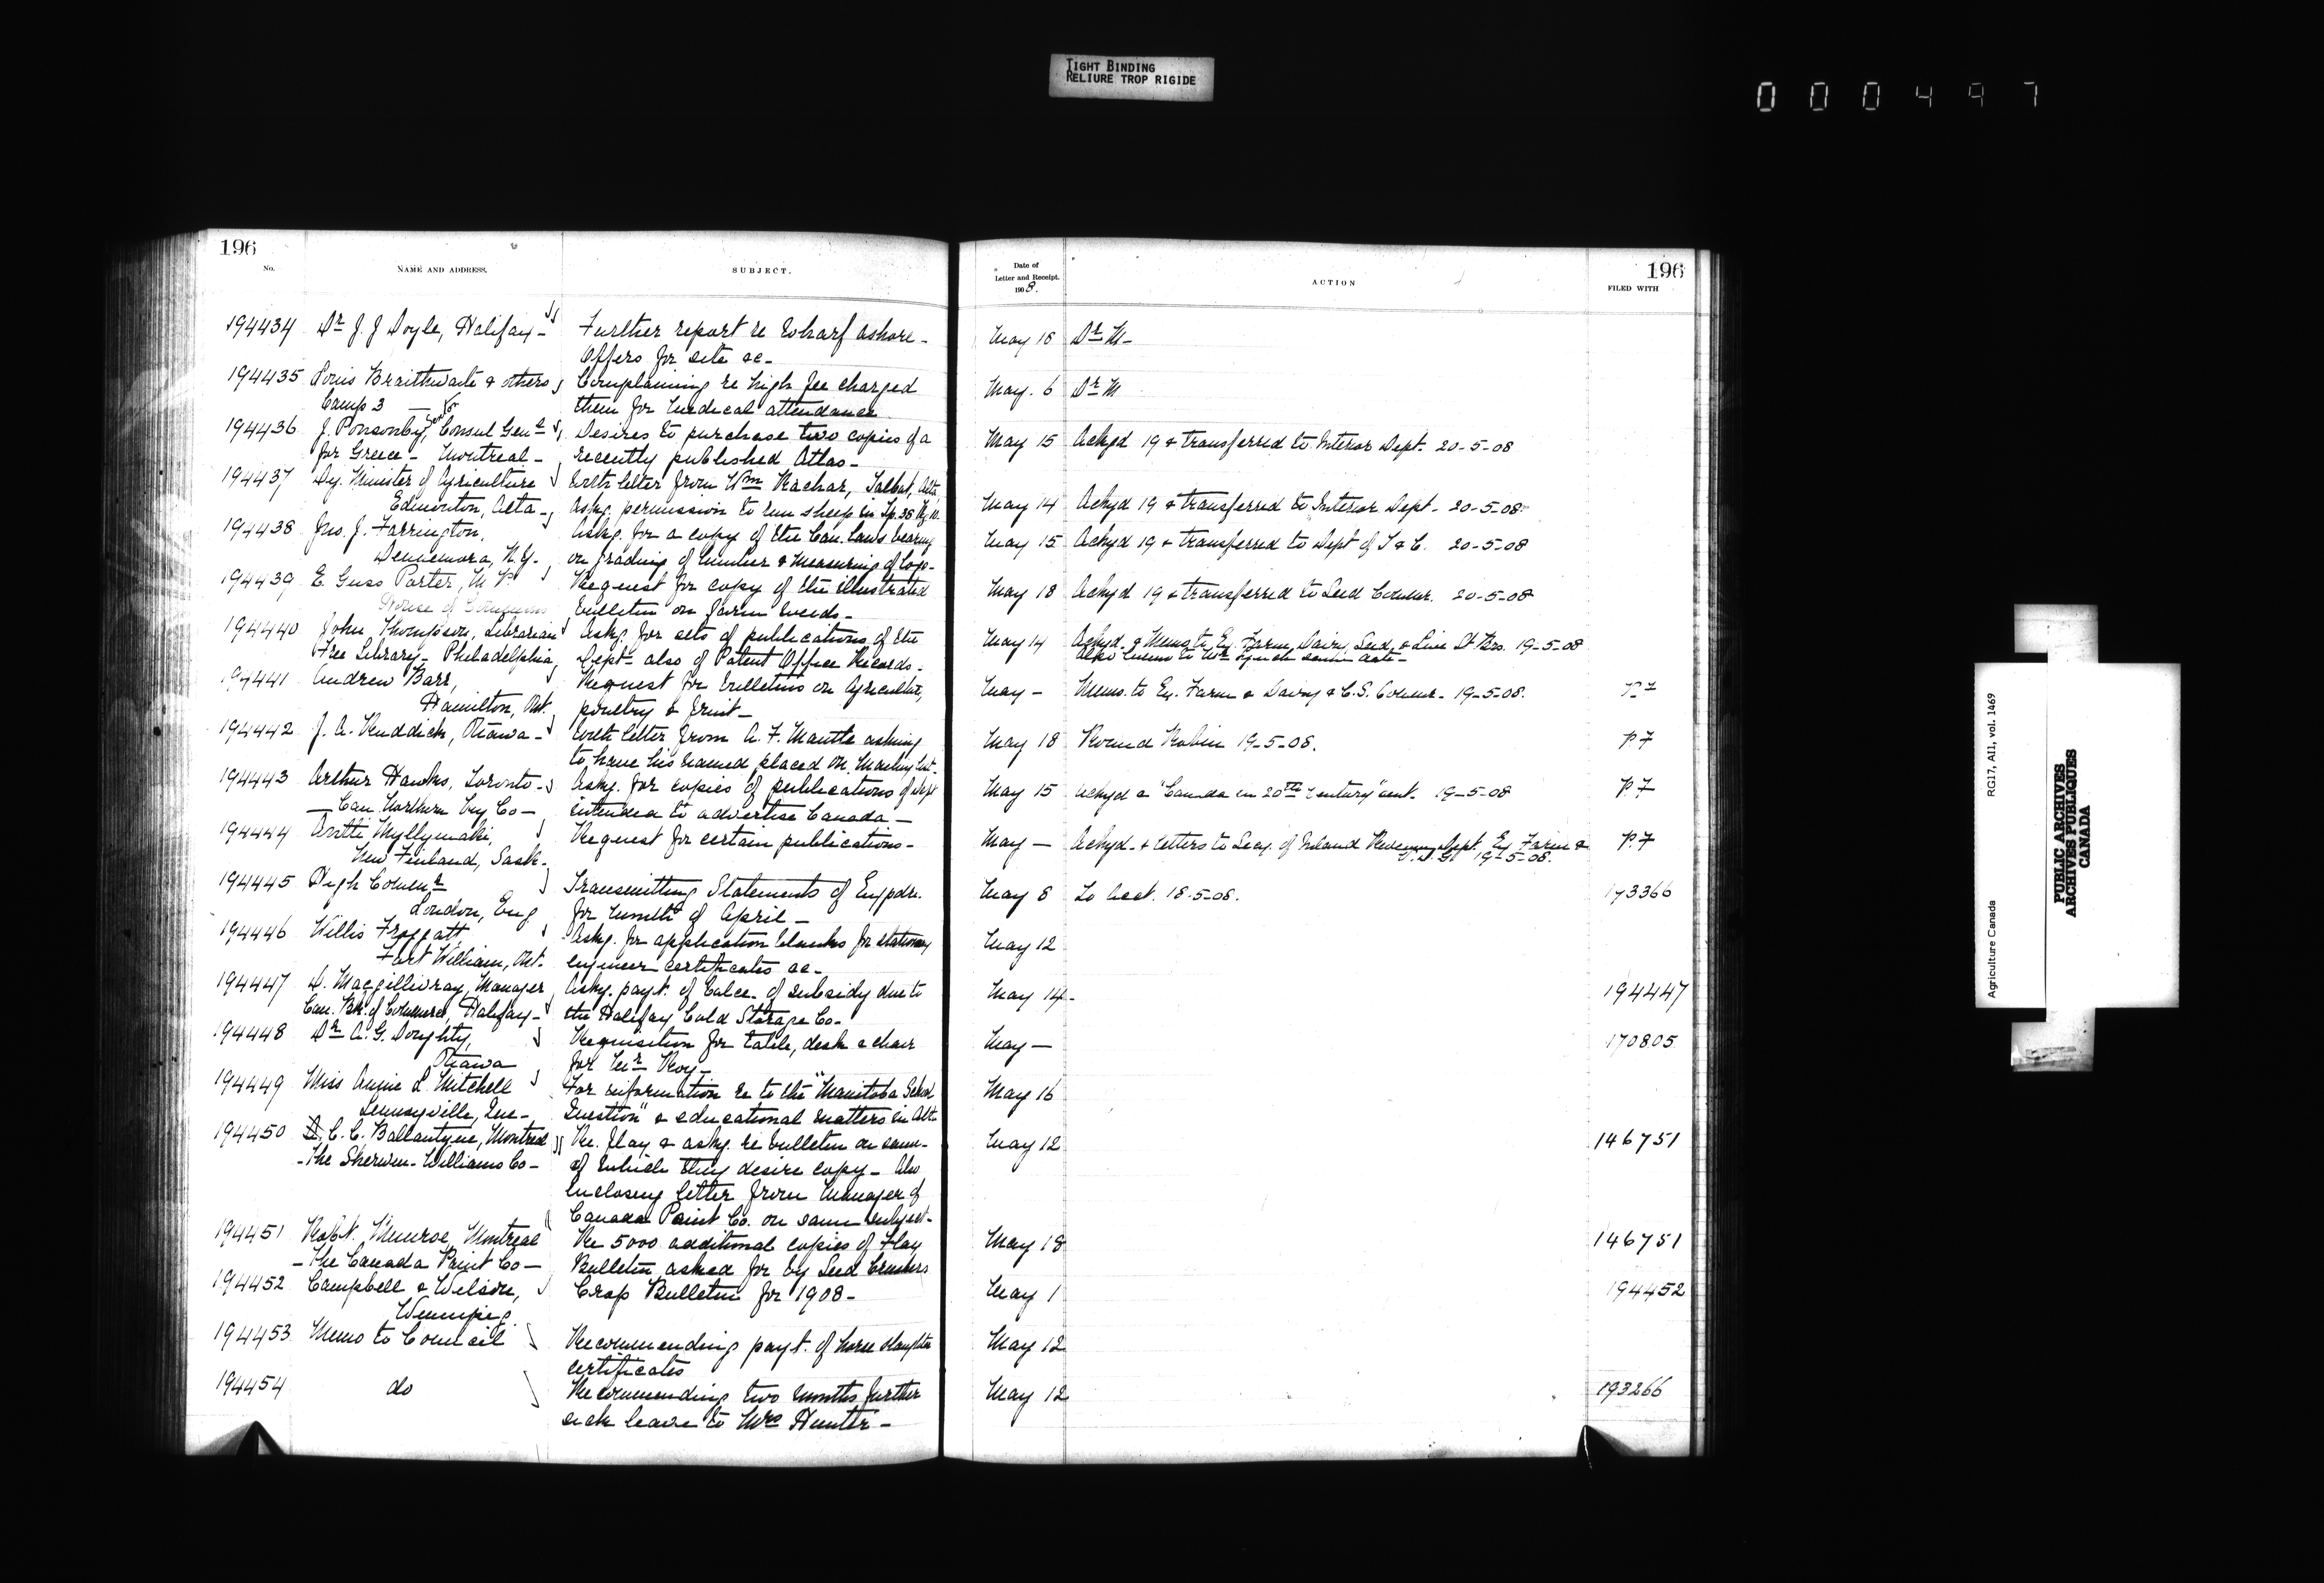 TIGHT BINDING
RELIURE TROP RIGIDE
000497
196
No.
NAME AND ADDRESS.
SUBJECT.
194434 Dr J. J Doyle, Halifax - Further report re Wharf ashore -
Offers for site &c -
194435 Louis Braithwaite & others Complaining re high fee charged
Camp 3 — them for medical attendance
194436 J. Ponsonby, Consul Genl Desires to purchase two copies of a
for Greece - Montreal - recently published Atlas -
194437 Dy. Minister of Agriculture With letter from Wm Rachar, Talbot, Alta,
Edmonton, Alta - Askg. permission to run sheep in Tp. 38 Rg. 10.
194438 Jno. J. Farrington, Askg. for a copy of the Can. Laws bearing
Dennemora, N.Y. on grading of lumber & measuring of logs -
194439 E. Guss Porter, M.P. Request for copy of the illustrated
House of Commons bulletin on farm weeds -
194440 John Thompson, Librarian Askg. for sets of publications of the
Free Library - Philadelphia, Dept - also of Patent Office Records -
194441 Andrew Barr, Request for bulletins on Agriculture,
Hamilton, Ont. poultry & fruit -
194442 J. A. Ruddick, Ottawa - With letter from A. F. Mantle asking
to have his named placed on Mailing List -
194443 Arthur Hawks, Toronto - Askg. for copies of publications of Dept
— Can. Northern Ry Co — intended to advertise Canada —
194444 Antti Myllymaki, Request for certain publications -
New Finland, Sask -
194445 High Commr Transmitting Statements of Expdre.
London, Eng for month of April —
194446 Willis Froggatt Askg. for application blanks for stationary
Fort William, Ont. engineer certificates &c -
194447 D. Macgillivray, Manager Askg. payt. of balce. of subsidy due to
Can. Bk. of Commerce, Halifax - the Halifax Cold Storage Co -
194448 Dr A. G. Doughty, Requisition for table, desk & chair
Ottawa for Mr Roy -
194449 Miss Annie L. Mitchell For information re to the "Manitoba School
Lennoxville, Que -, Question" & educational matters in Alta
194450 C. C. Ballantyne, Montreal Re. flax & askg. re bulletin on same -
- The Sherwin-Williams Co - of which they desire copy - Also
Enclosing letter from Manager of
Canada Paint Co. on same subject -
194451 Robt. Munroe, Montreal Re 5000 additional copies of Flax
- The Canada Paint Co — Bulletin asked for by Seed Crushers
194452 Campbell & Wilson, Crop Bulletin for 1908 -
Winnipeg.
194453 Memo to Council Recommending payt. of horse slaughter
certificates
194454 do Recommending two months further
sick leave to Mrs Hunter -
Date of
Letter and Receipt.
1908.
ACTION
196
FILED WITH
May 16 Dr M -
May. 6 Dr M
May 15 Ackgd 19 & transferred to Interior Dept. 20-5-08
May 14 Ackgd 19 & transferred to Interior Dept. 20-5-08
May 15 Ackgd 19 & transferred to Dept of T & C. 20-5-08
May 18 Ackgd 19 & transferred to Seed Commr. 20-5-08
May 14 Ackgd. & Memo to Ex. Farm, Dairy, Seed, & Live St Brs. 19-5-08
Also memo to Mr Lynch same date -
May — Memo. to Ex. Farm & Dairy & C.S. Commr - 19-5-08. P 7
May 18 Round Robin 19-5-08. P 7
May 15 Ackgd & "Canada in 20th Century" sent. 19-5-08 P 7
May — Ackgd. & letters to Secy. of Inland Revenue Dept Ex Farm & P 7
19-5-08.
May 8 To Acct. 18-5-08. 173366
May 12
May 14 - 194447
May — 170805
May 16
May 12 146751
May 18 146751
May 1 194452
May 12
May 12 193266
Agriculture Canada RG17, AII, vol. 1469
PUBLIC ARCHIVES
ARCHIVES PUBLIQUES
CANADA